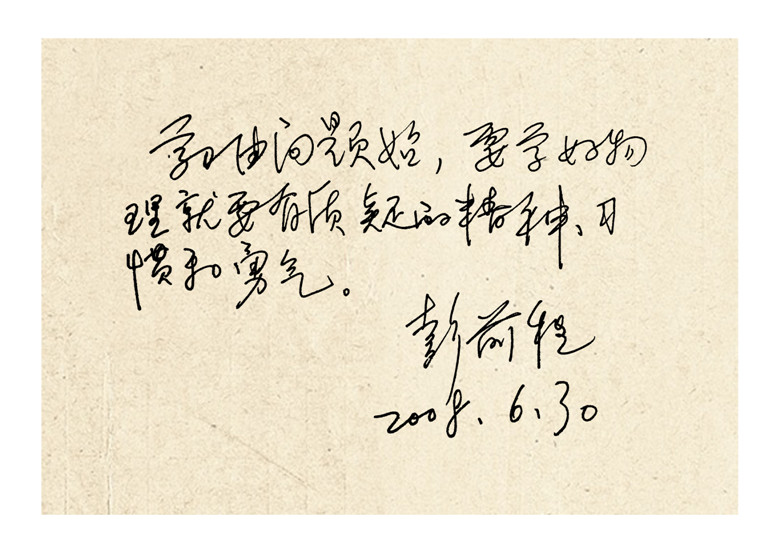 学习由问题始，要学好物
理就要有质疑的精神、习
惯和勇气。
彭前程
2008.6.30